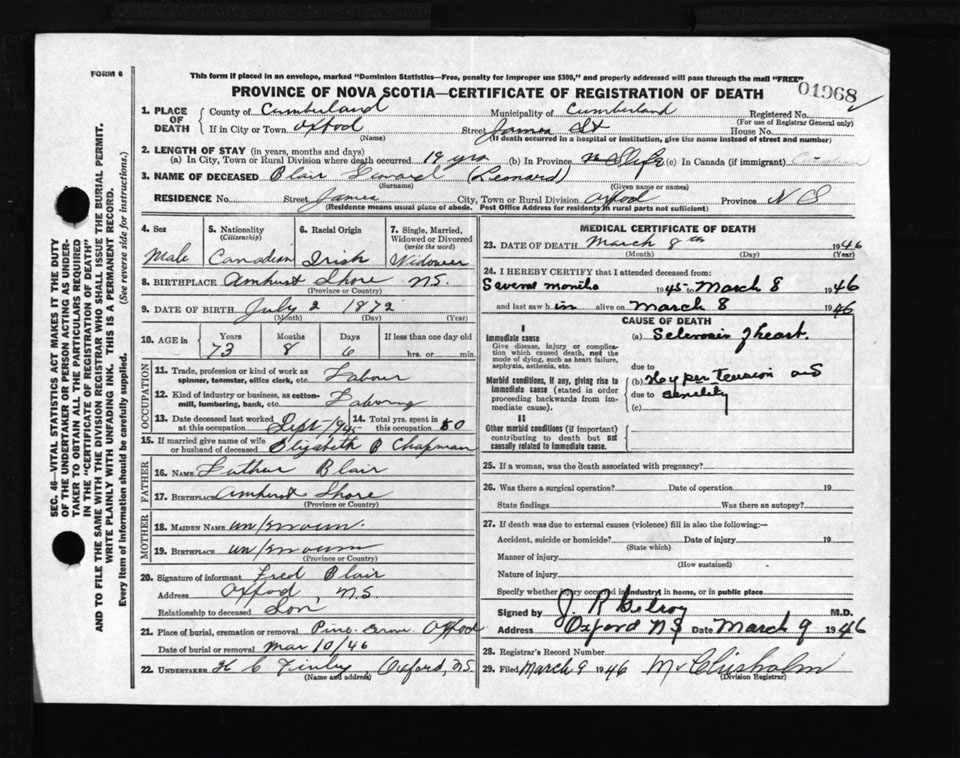 FORM 6
This form if placed in an envelope, marked "Dominion Statistics—Free, penalty for improper use $300," and properly addressed will pass through the mail "FREE"
PROVINCE OF NOVA SCOTIA—CERTIFICATE OF REGISTRATION OF DEATH
01968
SEC. 46—VITAL STATISTICS ACT MAKES IT THE DUTY
OF THE UNDERTAKER OR PERSON ACTING AS UNDER-
TAKER TO OBTAIN ALL THE PARTICULARS REQUIRED
IN THE "CERTIFICATE OF REGISTRATION OF DEATH"
AND TO FILE THE SAME WITH THE DIVISION REGISTRAR WHO SHALL ISSUE THE BURIAL PERMIT.
WRITE PLAINLY WITH UNFADING INK. THIS IS A PERMANENT RECORD.
Every item of information should be carefully supplied. (See reverse side for instructions.)
1. PLACE OF DEATH County of Cumberland Municipality of Cumberland Registered No.
(For use of Registrar General only)
If in City or Town Oxford Street James St House No.
(Name) (If death occurred in a hospital or institution, give the name instead of street and number)
2. LENGTH OF STAY (in years, months and days)
(a) In City, Town or Rural Division where death occurred 19 yrs (b) In Province Life (c) In Canada (if immigrant)
3. NAME OF DECEASED Blair (Leonard)
(Surname) (Given name or names)
RESIDENCE No. Street James City, Town or Rural Division Oxford Province N S
(Residence means usual place of abode. Post Office Address for residents in rural parts not sufficient)
4. Sex Male
5. Nationality (Citizenship) Canadian
6. Racial Origin Irish
7. Single, Married, Widowed or Divorced (write the word) Widower
8. BIRTHPLACE Amherst Shore N.S.
(Province or Country)
9. DATE OF BIRTH July 2 1872
(Month) (Day) (Year)
10. AGE in Years 73 Months 8 Days 6 If less than one day old hrs. or min.
OCCUPATION
11. Trade, profession or kind of work as spinner, teamster, office clerk, etc. Labour
12. Kind of industry or business, as cotton-mill, lumbering, bank, etc. Laboring
13. Date deceased last worked at this occupation Sept/1945
14. Total yrs. spent in this occupation 50
15. If married give name of wife or husband of deceased Elizabeth B Chapman
FATHER
16. NAME Luther Blair
17. BIRTHPLACE Amherst Shore
(Province or Country)
MOTHER
18. MAIDEN NAME unknown.
19. BIRTHPLACE unknown
(Province or Country)
20. Signature of informant Fred Blair
Address Oxford, N.S.
Relationship to deceased Son
21. Place of burial, cremation or removal Pine Grove Oxford
Date of burial or removal Mar 10/46
22. UNDERTAKER H C Finley, Oxford, N.S.
(Name and address)
MEDICAL CERTIFICATE OF DEATH
23. DATE OF DEATH March 8th 1946
(Month) (Day) (Year)
24. I HEREBY CERTIFY that I attended deceased from:
Several months 1945 to March 8 1946
and last saw him alive on March 8 1946
CAUSE OF DEATH
I
Immediate cause
Give disease, injury or complication which caused death, not the mode of dying, such as heart failure, asphyxia, asthenia, etc.
(a) Sclerosis of heart.
due to
Morbid conditions, if any, giving rise to immediate cause (stated in order proceeding backwards from immediate cause).
(b) Hyper Tension and
due to senility
(c)
II
Other morbid conditions (if important) contributing to death but not causally related to immediate cause.
25. If a woman, was the death associated with pregnancy?
26. Was there a surgical operation? Date of operation 19
State findings Was there an autopsy?
27. If death was due to external causes (violence) fill in also the following:—
Accident, suicide or homicide? Date of injury 19
(State which)
Manner of injury
(How sustained)
Nature of injury
Specify whether injury occurred in industry, in home, or in public place
Signed by J. R Gilroy M.D.
Address Oxford N S Date March 9 1946
28. Registrar's Record Number
29. Filed March 9 1946 M Chisholm
(Division Registrar)